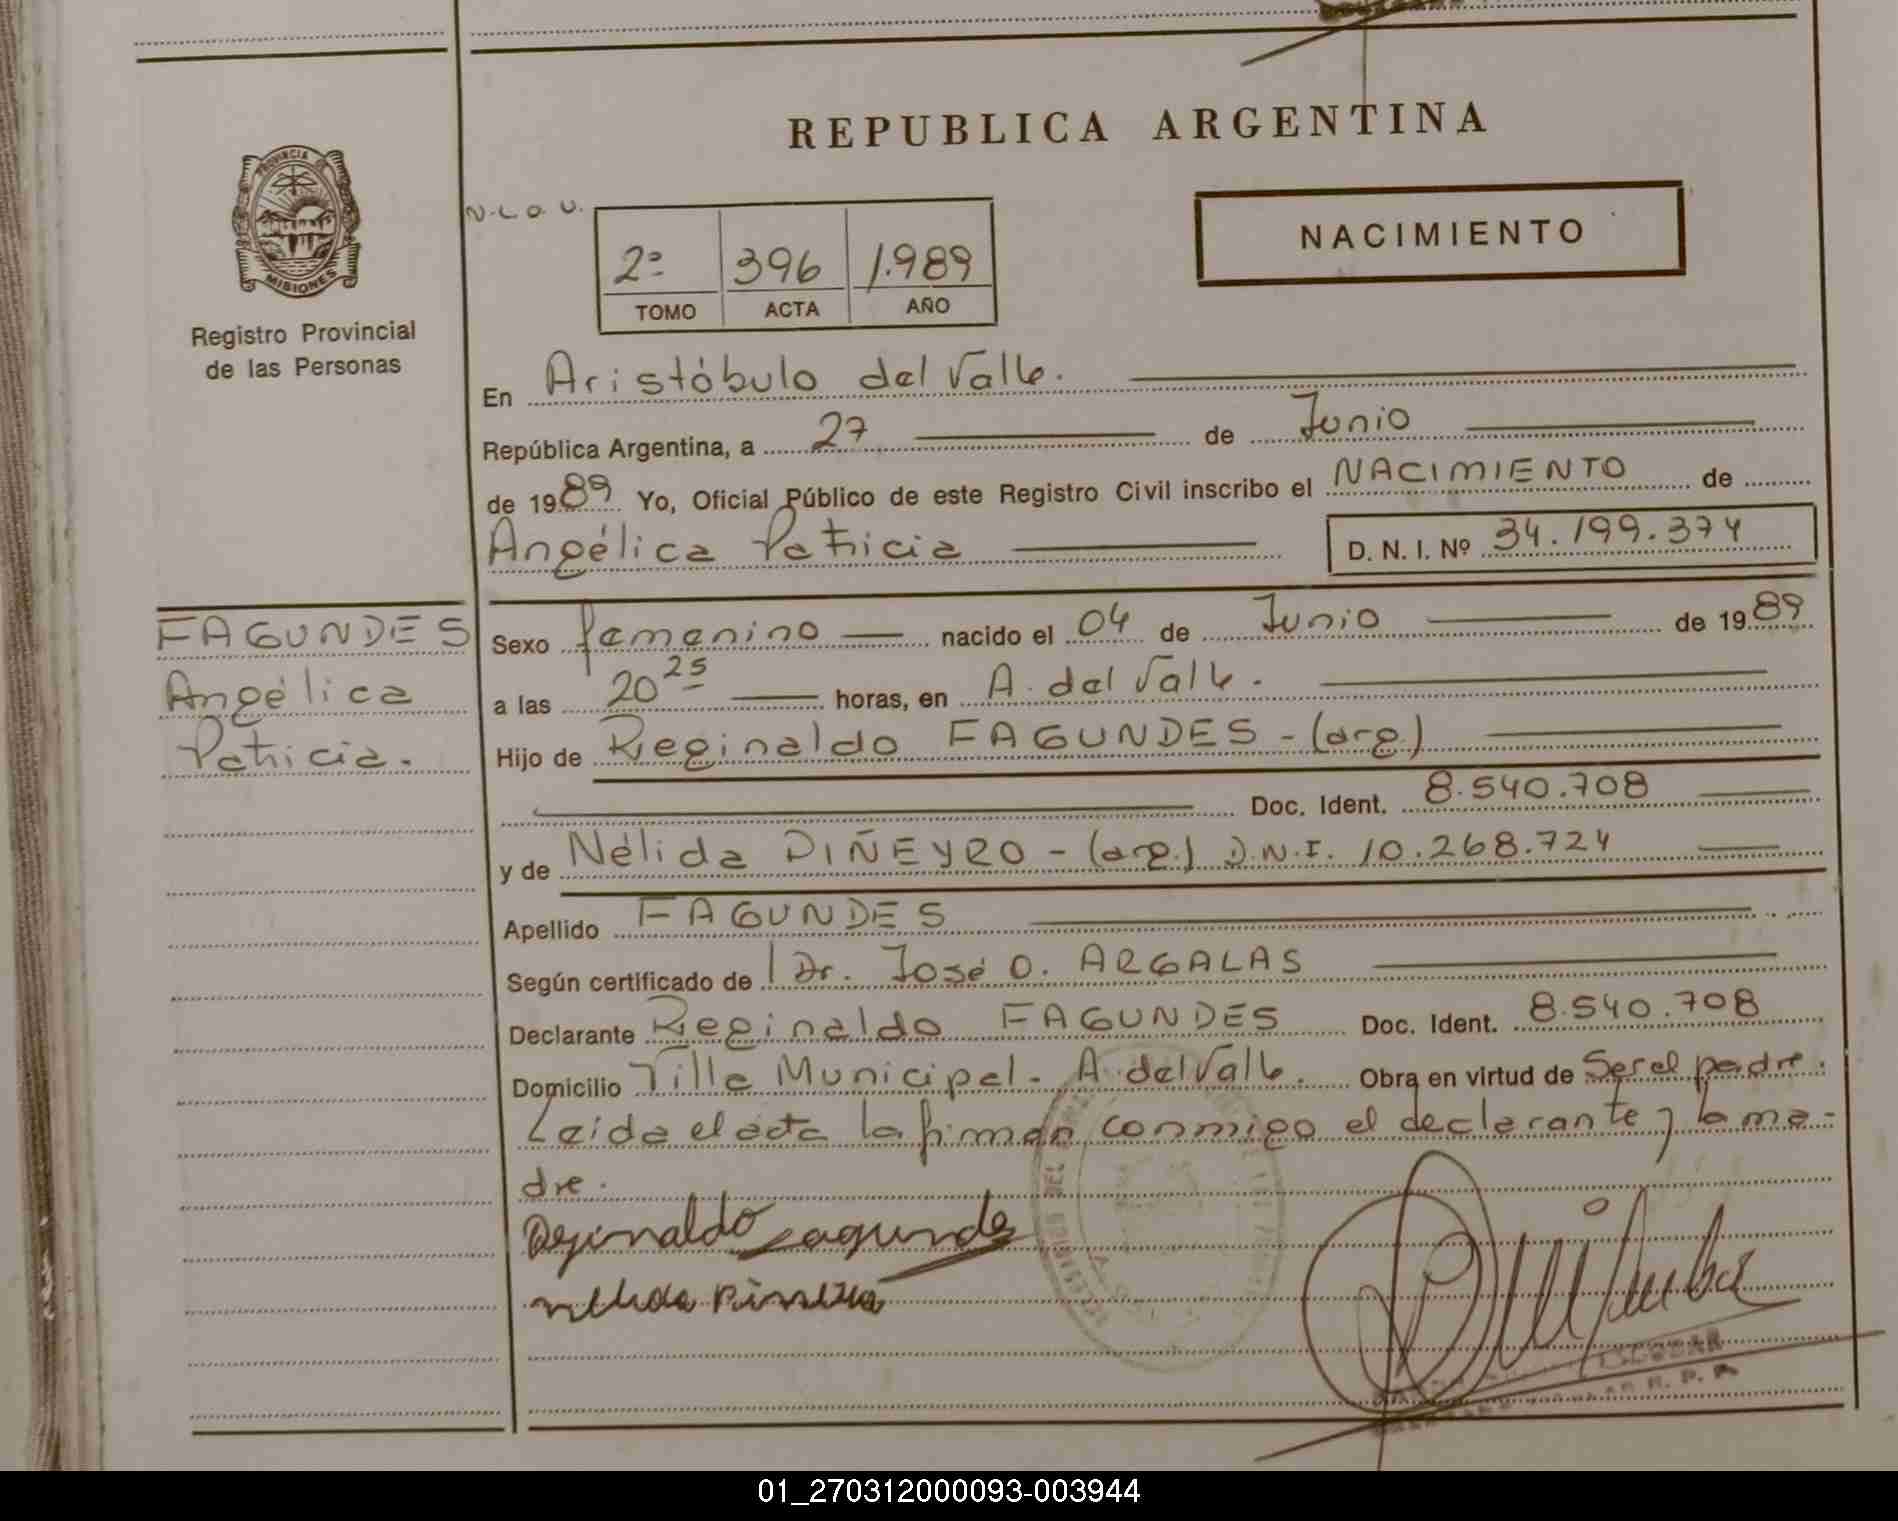 REPUBLICA ARGENTINA
PROVINCIA DE
MISIONES
Registro Provincial
de las Personas
N.L.O.U.
2º 396 1.989
TOMO ACTA AÑO
NACIMIENTO
En Aristóbulo del Valle.
República Argentina, a 27 de Junio
de 1989 Yo, Oficial Público de este Registro Civil inscribo el NACIMIENTO de
Angélica Patricia D. N. I. Nº 34.199.374
FAGUNDES
Angélica
Patricia.
Sexo femenino nacido el 04 de Junio de 1989
a las 20 25 horas, en A. del Valle.
Hijo de Reginaldo FAGUNDES - (arg.)
Doc. Ident. 8.540.708
y de Nélida PIÑEYRO - (arg.) D.N.I. 10.268.724
Apellido FAGUNDES
Según certificado de Dr. José O. ARGALAS
Declarante Reginaldo FAGUNDES Doc. Ident. 8.540.708
Domicilio Villa Municipal - A. del Valle. Obra en virtud de Ser el padre.
Leida el acta la firman conmigo el declarante y la ma-
dre.
Reginaldo Fagundes
01_270312000093-003944